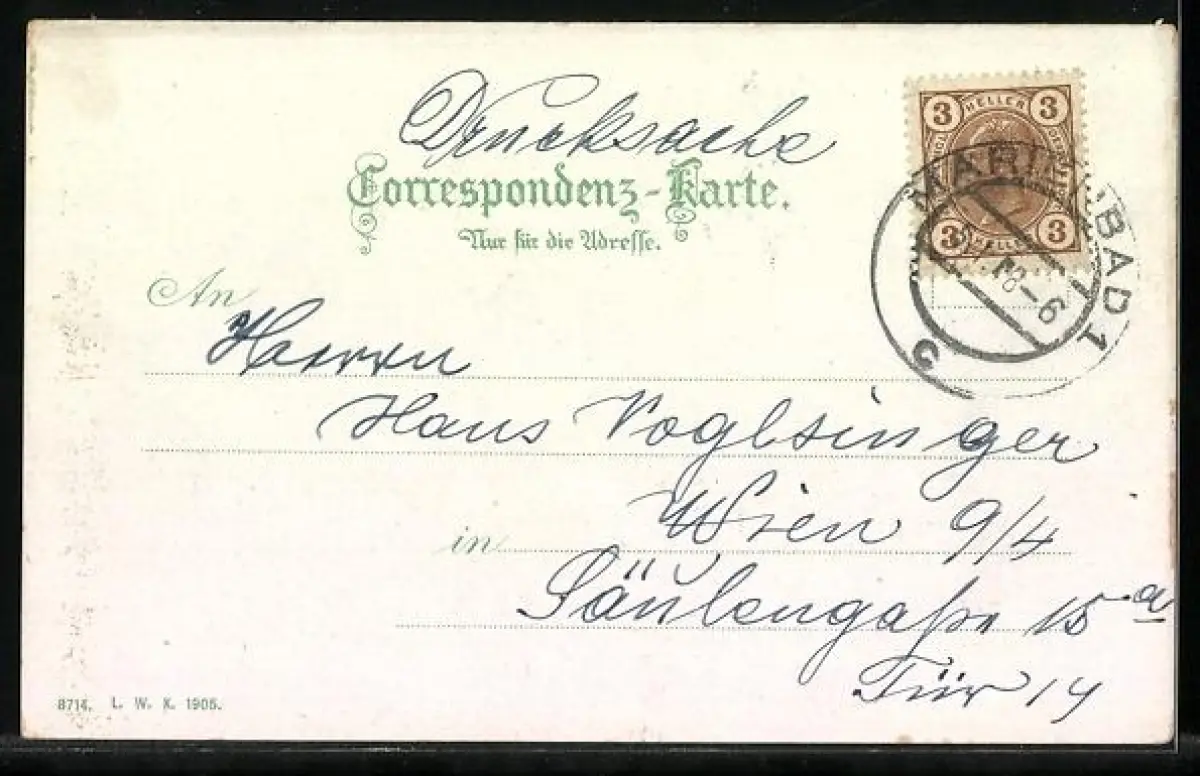 Drucksache
Correspondenz-Karte.
Nur für die Adresse.
3 HELLER 3
3 HELLER 3
MARIENBAD 1
8-6
c
An
Herrn
Hans Voglsinger
Wien 9/4
in
Säulengaße 15 a
Tür 14
8714. L. W. K. 1905.